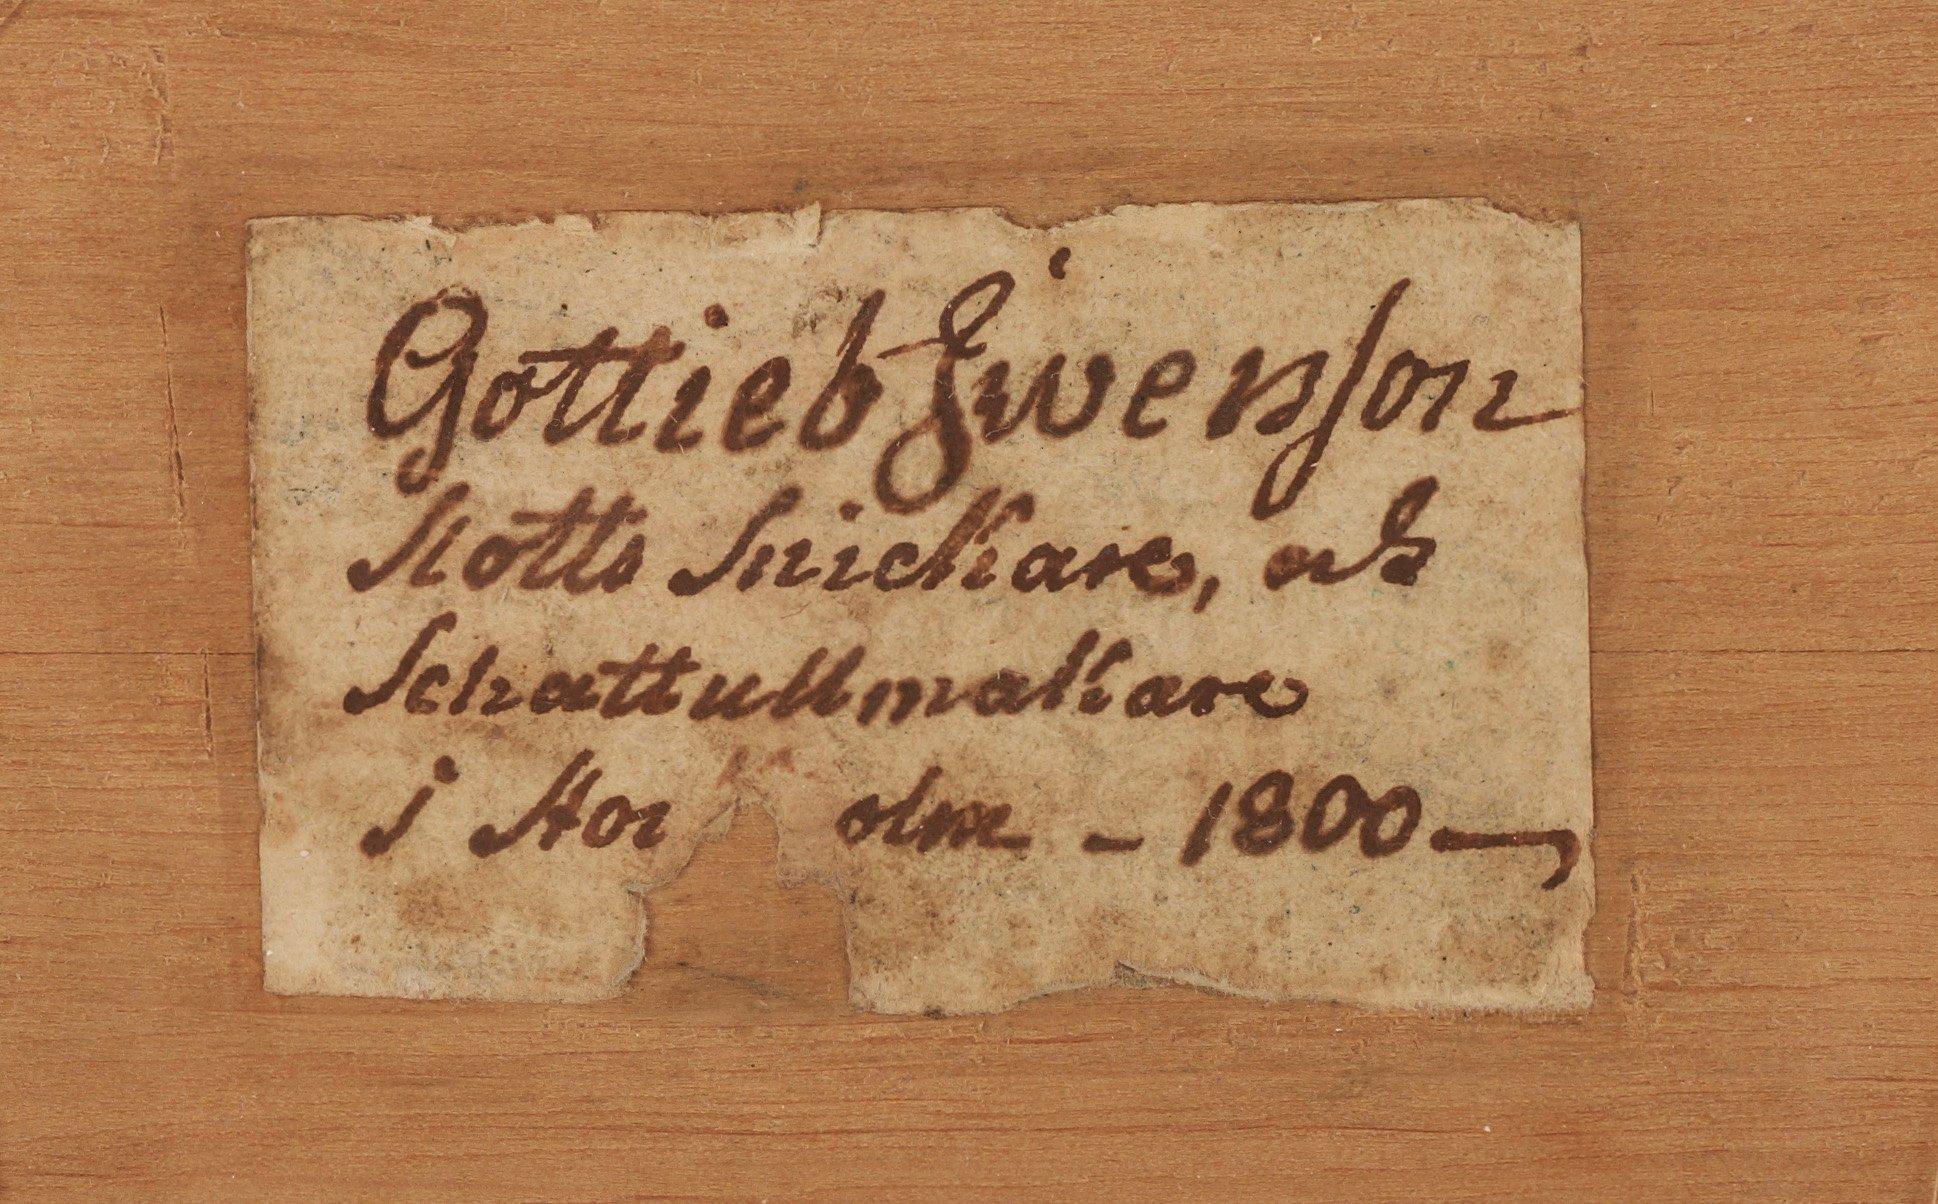 Gottieb Iwersson
Slotts Snickare, och
Schattullmakare
i Stoc olm - 1800 —